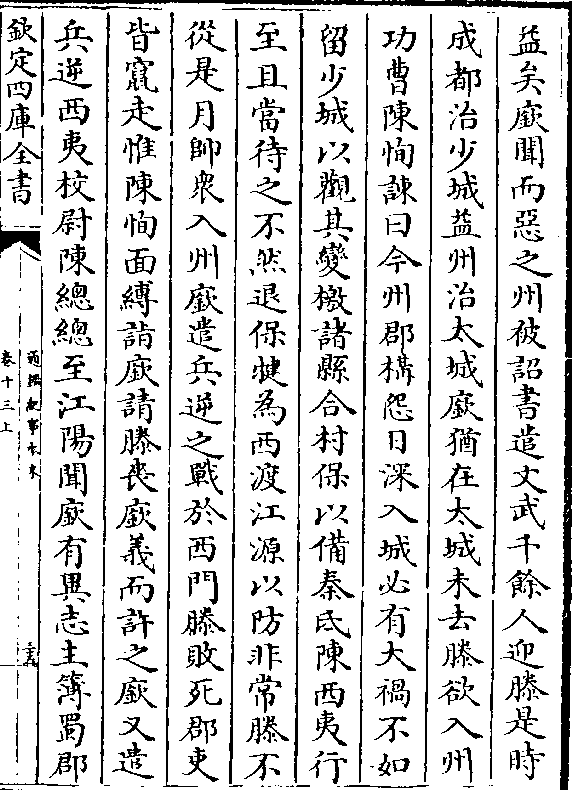 益矣廞聞而惡之州被詔書遣文武千餘人迎滕是時
成都治少城益州治太城廞猶在太城未去滕欲入州
功曹陳恂諫曰今州郡構怨日深入城必有大禍不如
留少城以觀其變檄諸縣合村保以備秦氐陳西夷行
至且當待之不然退保犍為西渡江源以防非常滕不
從是月帥衆入州廞遣兵逆之戰於西門滕敗死郡吏
皆竄走惟陳恂面縛詣廞請滕喪廞義而許之廞又遣
兵逆西夷校尉陳總總至江陽聞廞有異志主簿蜀郡
欽定四庫全書
通鑑紀事本末
卷十三上